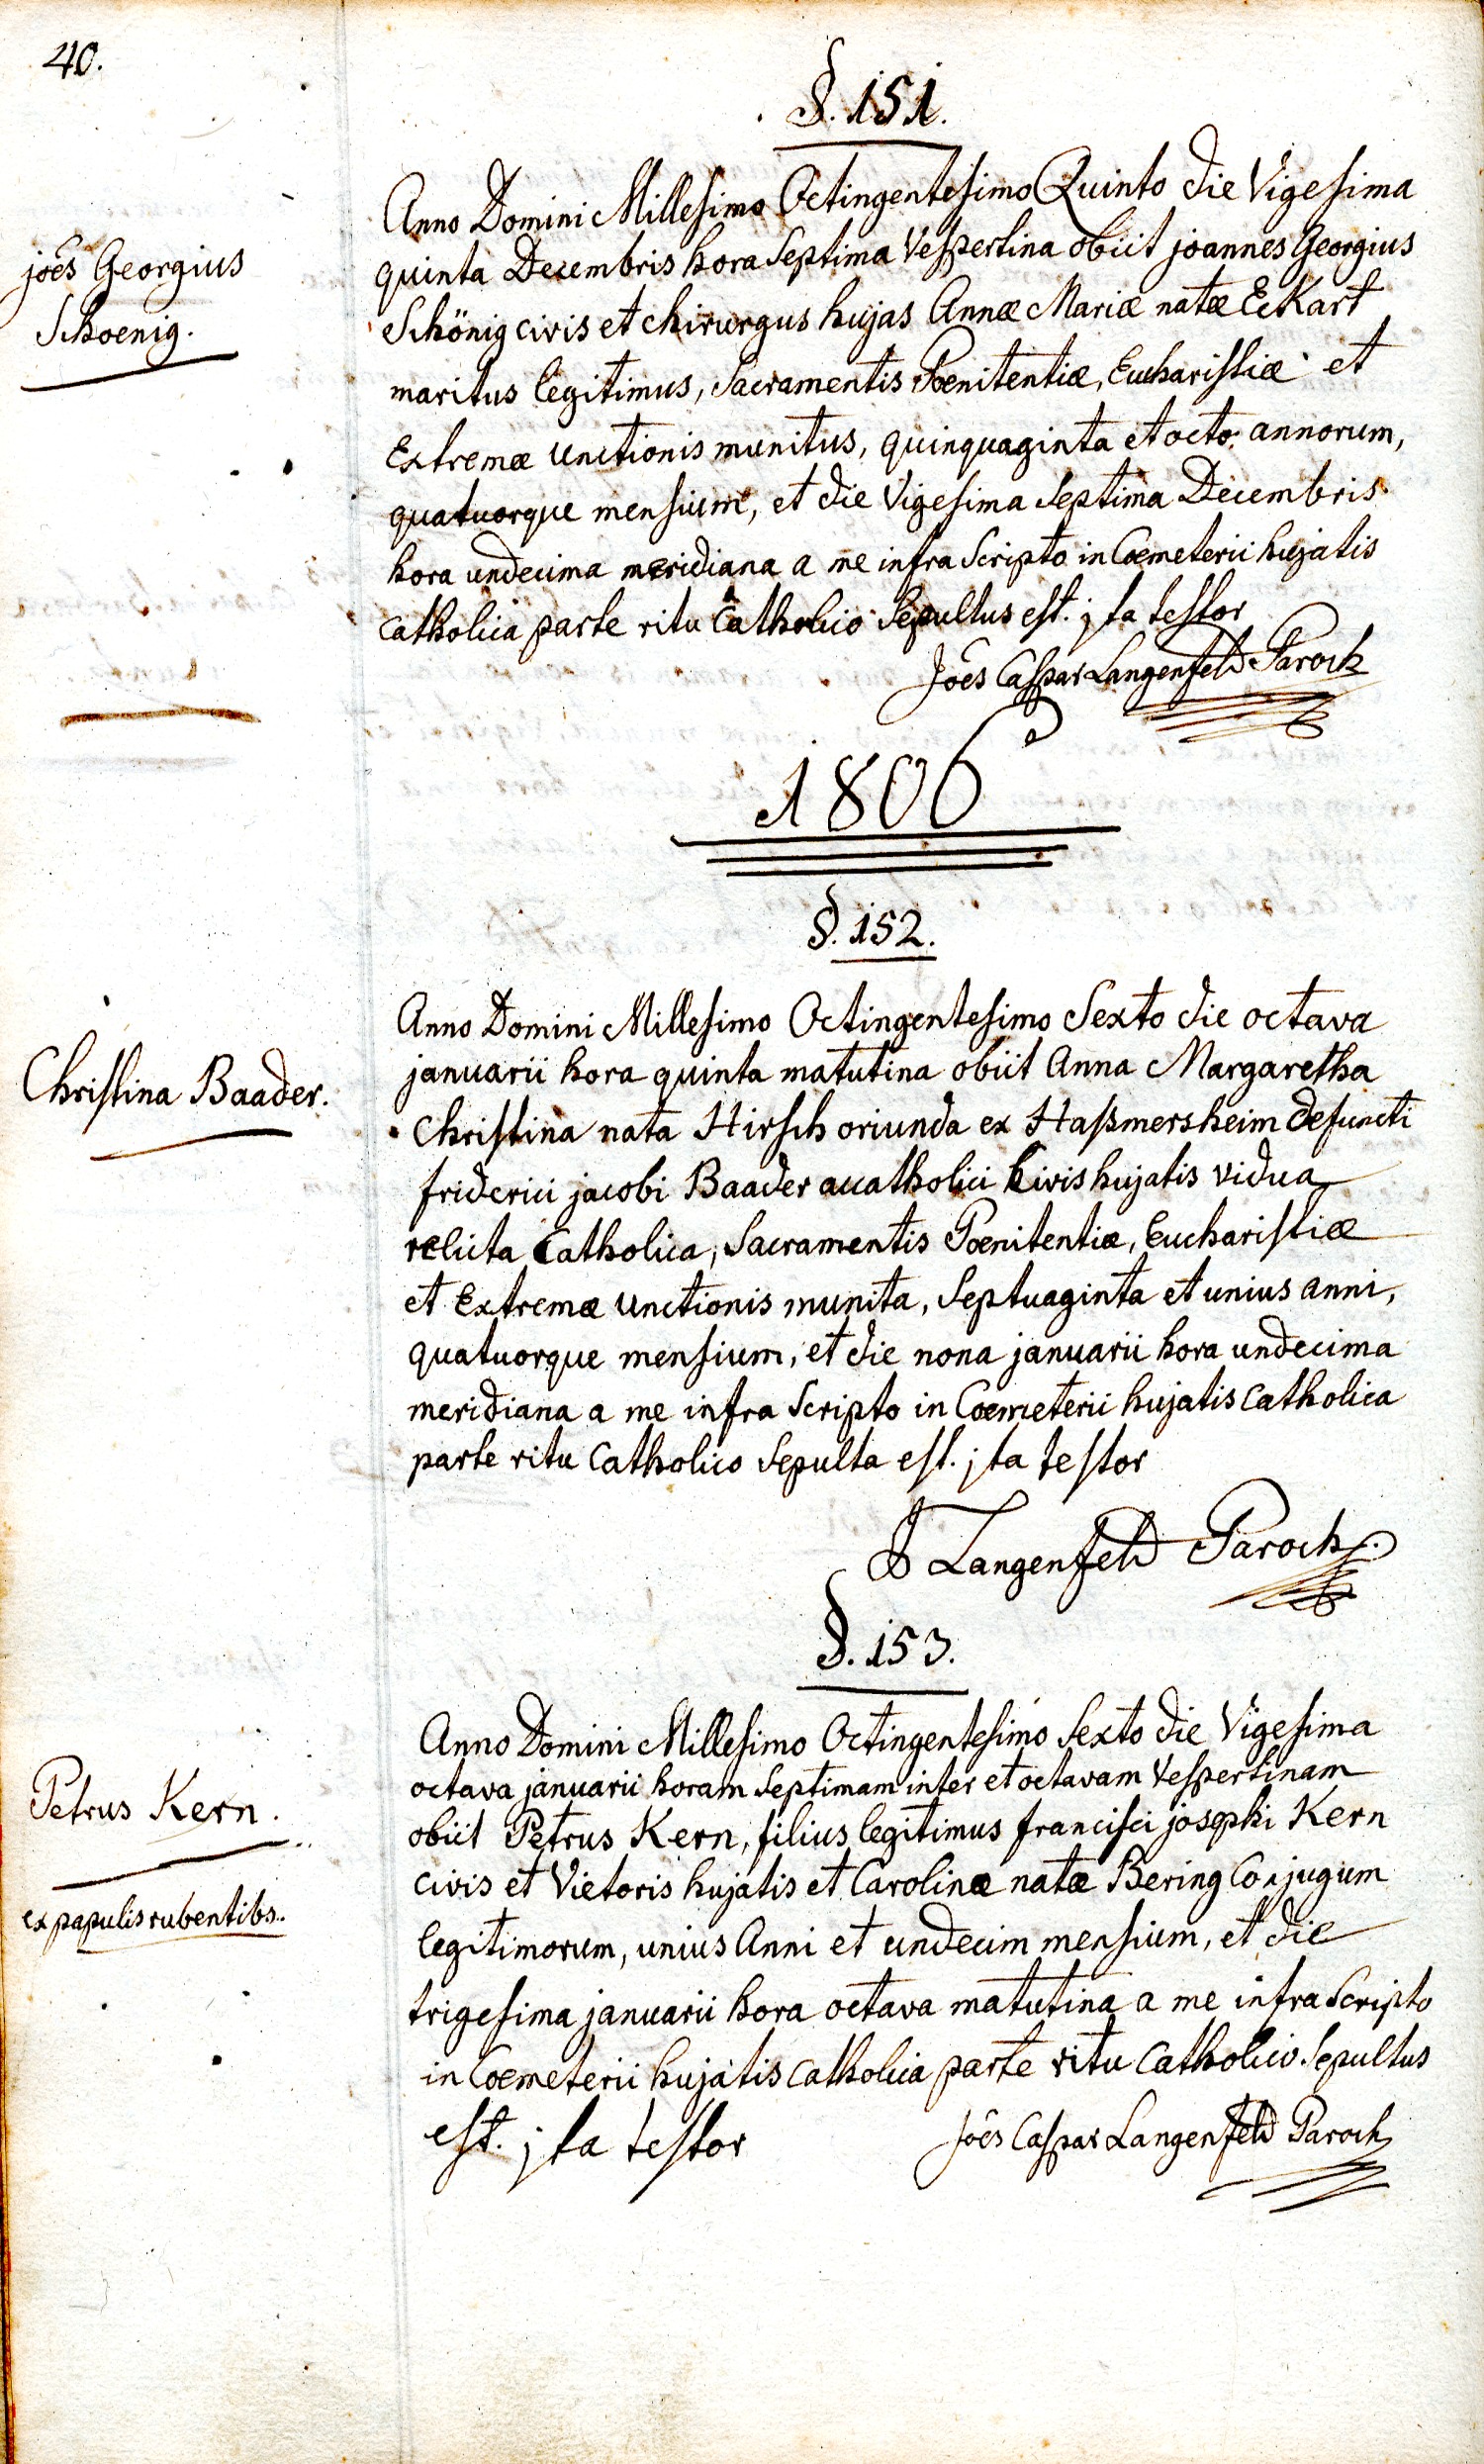 40.
§. 151.
joês Georgius
Schoenig.
Anno Domini Millesimo Octingentesimo Quinto die Vigesima
quinta Decembris hora Septima Vespertina obiit joannes Georgius
Schönig civis et chirurgus hujas Annæ Mariæ natæ EcKart
maritus legitimus, Sacramentis Pœnitentiæ, Eucharistiæ et
Extremæ Unctionis munitus, quinquaginta et octo annorum,
quatuorque mensium, et die Vigesima Septima Decembris
hora undecima meridiana a me infra Scripto in Cœmeterii hujatis
catholica parte ritu Catholico Sepultus est. jta testor
Joês Caspar Langenfeld Paroch
1806
§. 152.
Christina Baader.
Anno Domini Millesimo Octingentesimo Sexto die octava
januarii hora quinta matutina obiit Anna Margaretha
Christina nata Hirsch oriunda ex Haßmersheim defuncti
friderici jacobi Baader acatholici Civis hujatis vidua
relicta Catholica, Sacramentis Pœnitentiæ, Eucharistiæ
et Extremæ Unctionis munita, Septuaginta et unius anni,
quatuorque mensium, et die nona januarii hora undecima
meridiana a me infra Scripto in Cœmeterii hujatis catholica
parte ritu Catholico Sepulta est. jta testor
J Langenfeld Paroch.
§. 153.
Petrus Kern.
ex papulis rubentibs.
Anno Domini Millesimo Octingentesimo Sexto die Vigesima
octava januarii horam Septimam inter et octavam Vespertinam
obiit Petrus Kern, filius legitimus francisci josephi Kern
civis et Vietoris hujatis et Carolinæ natæ Bering Conjugum
legitimorum, unius Anni et undecim mensium, et die
trigesima januarii hora octava matutina a me infra Scripto
in Cœmeterii hujatis catholica parte ritu Catholico Sepultus
est. jta testor
Joês Caspar Langenfeld Paroch